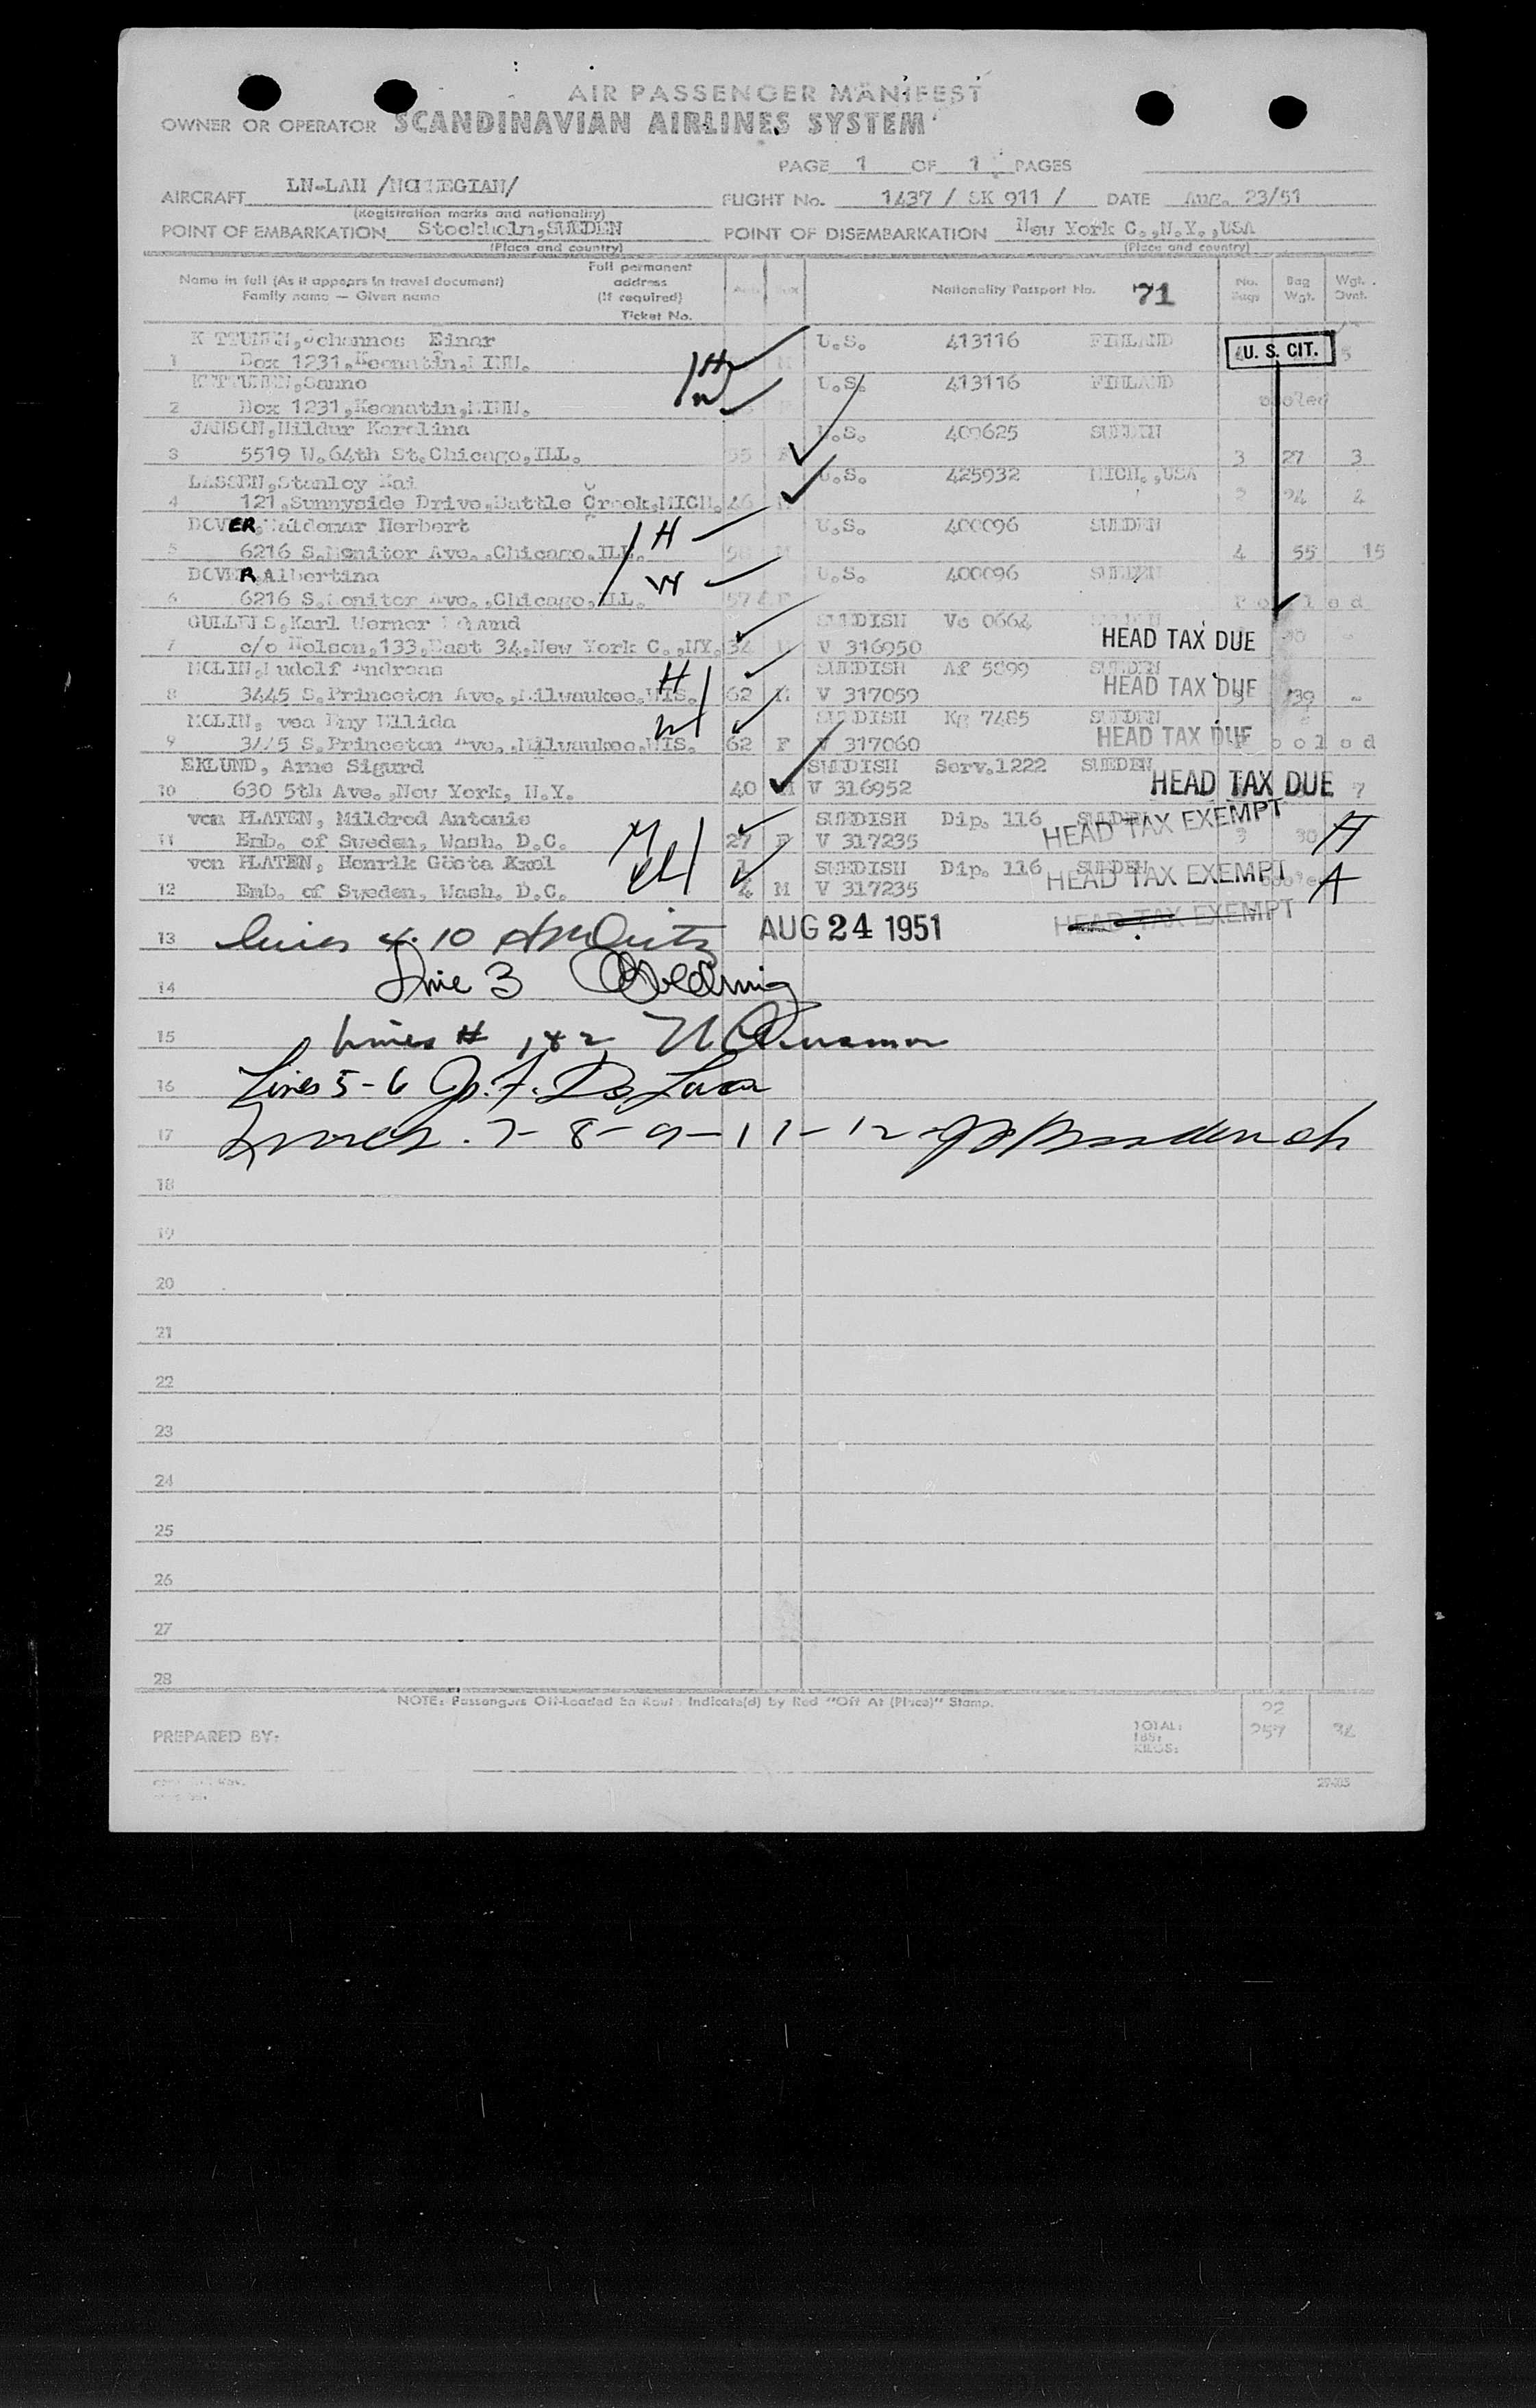 AIR PASSENGER MANIFEST
OWNER OR OPERATOR SCANDINAVIAN AIRLINES SYSTEM
PAGE 1 OF 1 PAGES
AIRCRAFT LN-LAH /NORWEGIAN/ FLIGHT No. 1437 / SK 911 / DATE Aug. 23/51
(Registration marks and nationality)
POINT OF EMBARKATION Stockholm,SWEDEN POINT OF DISEMBARKATION New York C.,N.Y.,USA
(Place and country) (Place and country)
Name in full (As it appears in travel document) Family name — Given name Full permanent address (If required) Ticket No. Age Sex Nationality Passport No. 71 No. Bags Bag Wgt. Wgt. Ovnt.
Einar U.S. 413116 FINLAND
1 Box 1231, MINN. H M U.S. CIT. 5
KETTUNEN,Sanno U.S. 413116 FINLAND
2 Box 1231, MINN. W pooled
JANSON,Hildur Karolina U.S. 400625 SWEDEN
3 5519 W.64th St.Chicago,ILL. 55 F 3 27 3
LASSEN,Stanley Kai U.S. 425932 MICH.,USA
4 121,Sunnyside Drive,Battle Creek,MICH. 46 M 2 24 4
DOVER, Waldemar Herbert U.S. 400096 SWEDEN
5 6216 S.Monitor Ave.,Chicago,ILL. H 58 M 4 55 15
DOVER Albertina U.S. 400096 SWEDEN
6 6216 S.Monitor Ave.,Chicago,ILL. W 57 F P o o l e d
GULLERS,Karl Werner Edmund SWEDISH Ve 0664
7 c/o Nelson,133,East 34,New York C.,NY. 34 M V 316950 HEAD TAX DUE
MOLIN,Rudolf Andreas SWEDISH Af 5899 SWEDEN
8 3445 S.Princeton Ave.,Milwaukee,WIS. H 62 M V 317059 HEAD TAX DUE 39 -
MOLIN, vea Eny Ellida SWEDISH Kg 7485 SWEDEN
9 3445 S.Princeton Ave.,Milwaukee,WIS. W 62 F V 317060 HEAD TAX DUE P o o l e d
EKLUND, Arne Sigurd SWEDISH Serv.1222 SWEDEN
10 630 5th Ave.,New York, N.Y. 40 M V 316952 HEAD TAX DUE 7
von PLATEN, Mildred Antonie SWEDISH Dip. 116 SWEDEN
11 Emb. of Sweden, Wash. D.C. M 27 F V 317235 HEAD TAX EXEMPT 3 30 A
von PLATEN, Henrik Gösta Axel 1 SWEDISH Dip. 116 SWEDEN
12 Emb. of Sweden, Wash. D.C. ch 4 M V 317235 HEAD TAX EXEMPT pooled A
13 Lines 4.10 AUG 24 1951 HEAD TAX EXEMPT
14 Line 3
15 Lines # 1 & 2
16 Lines 5-6 De Luca
17 Lines 7-8-9-11-12
18
19
20
21
22
23
24
25
26
27
28
NOTE: Passengers Off-Loaded En Route Indicate(d) by Red "Off At (Place)" Stamp.
22
PREPARED BY: TOTAL: LBS: KILOS: 257 34